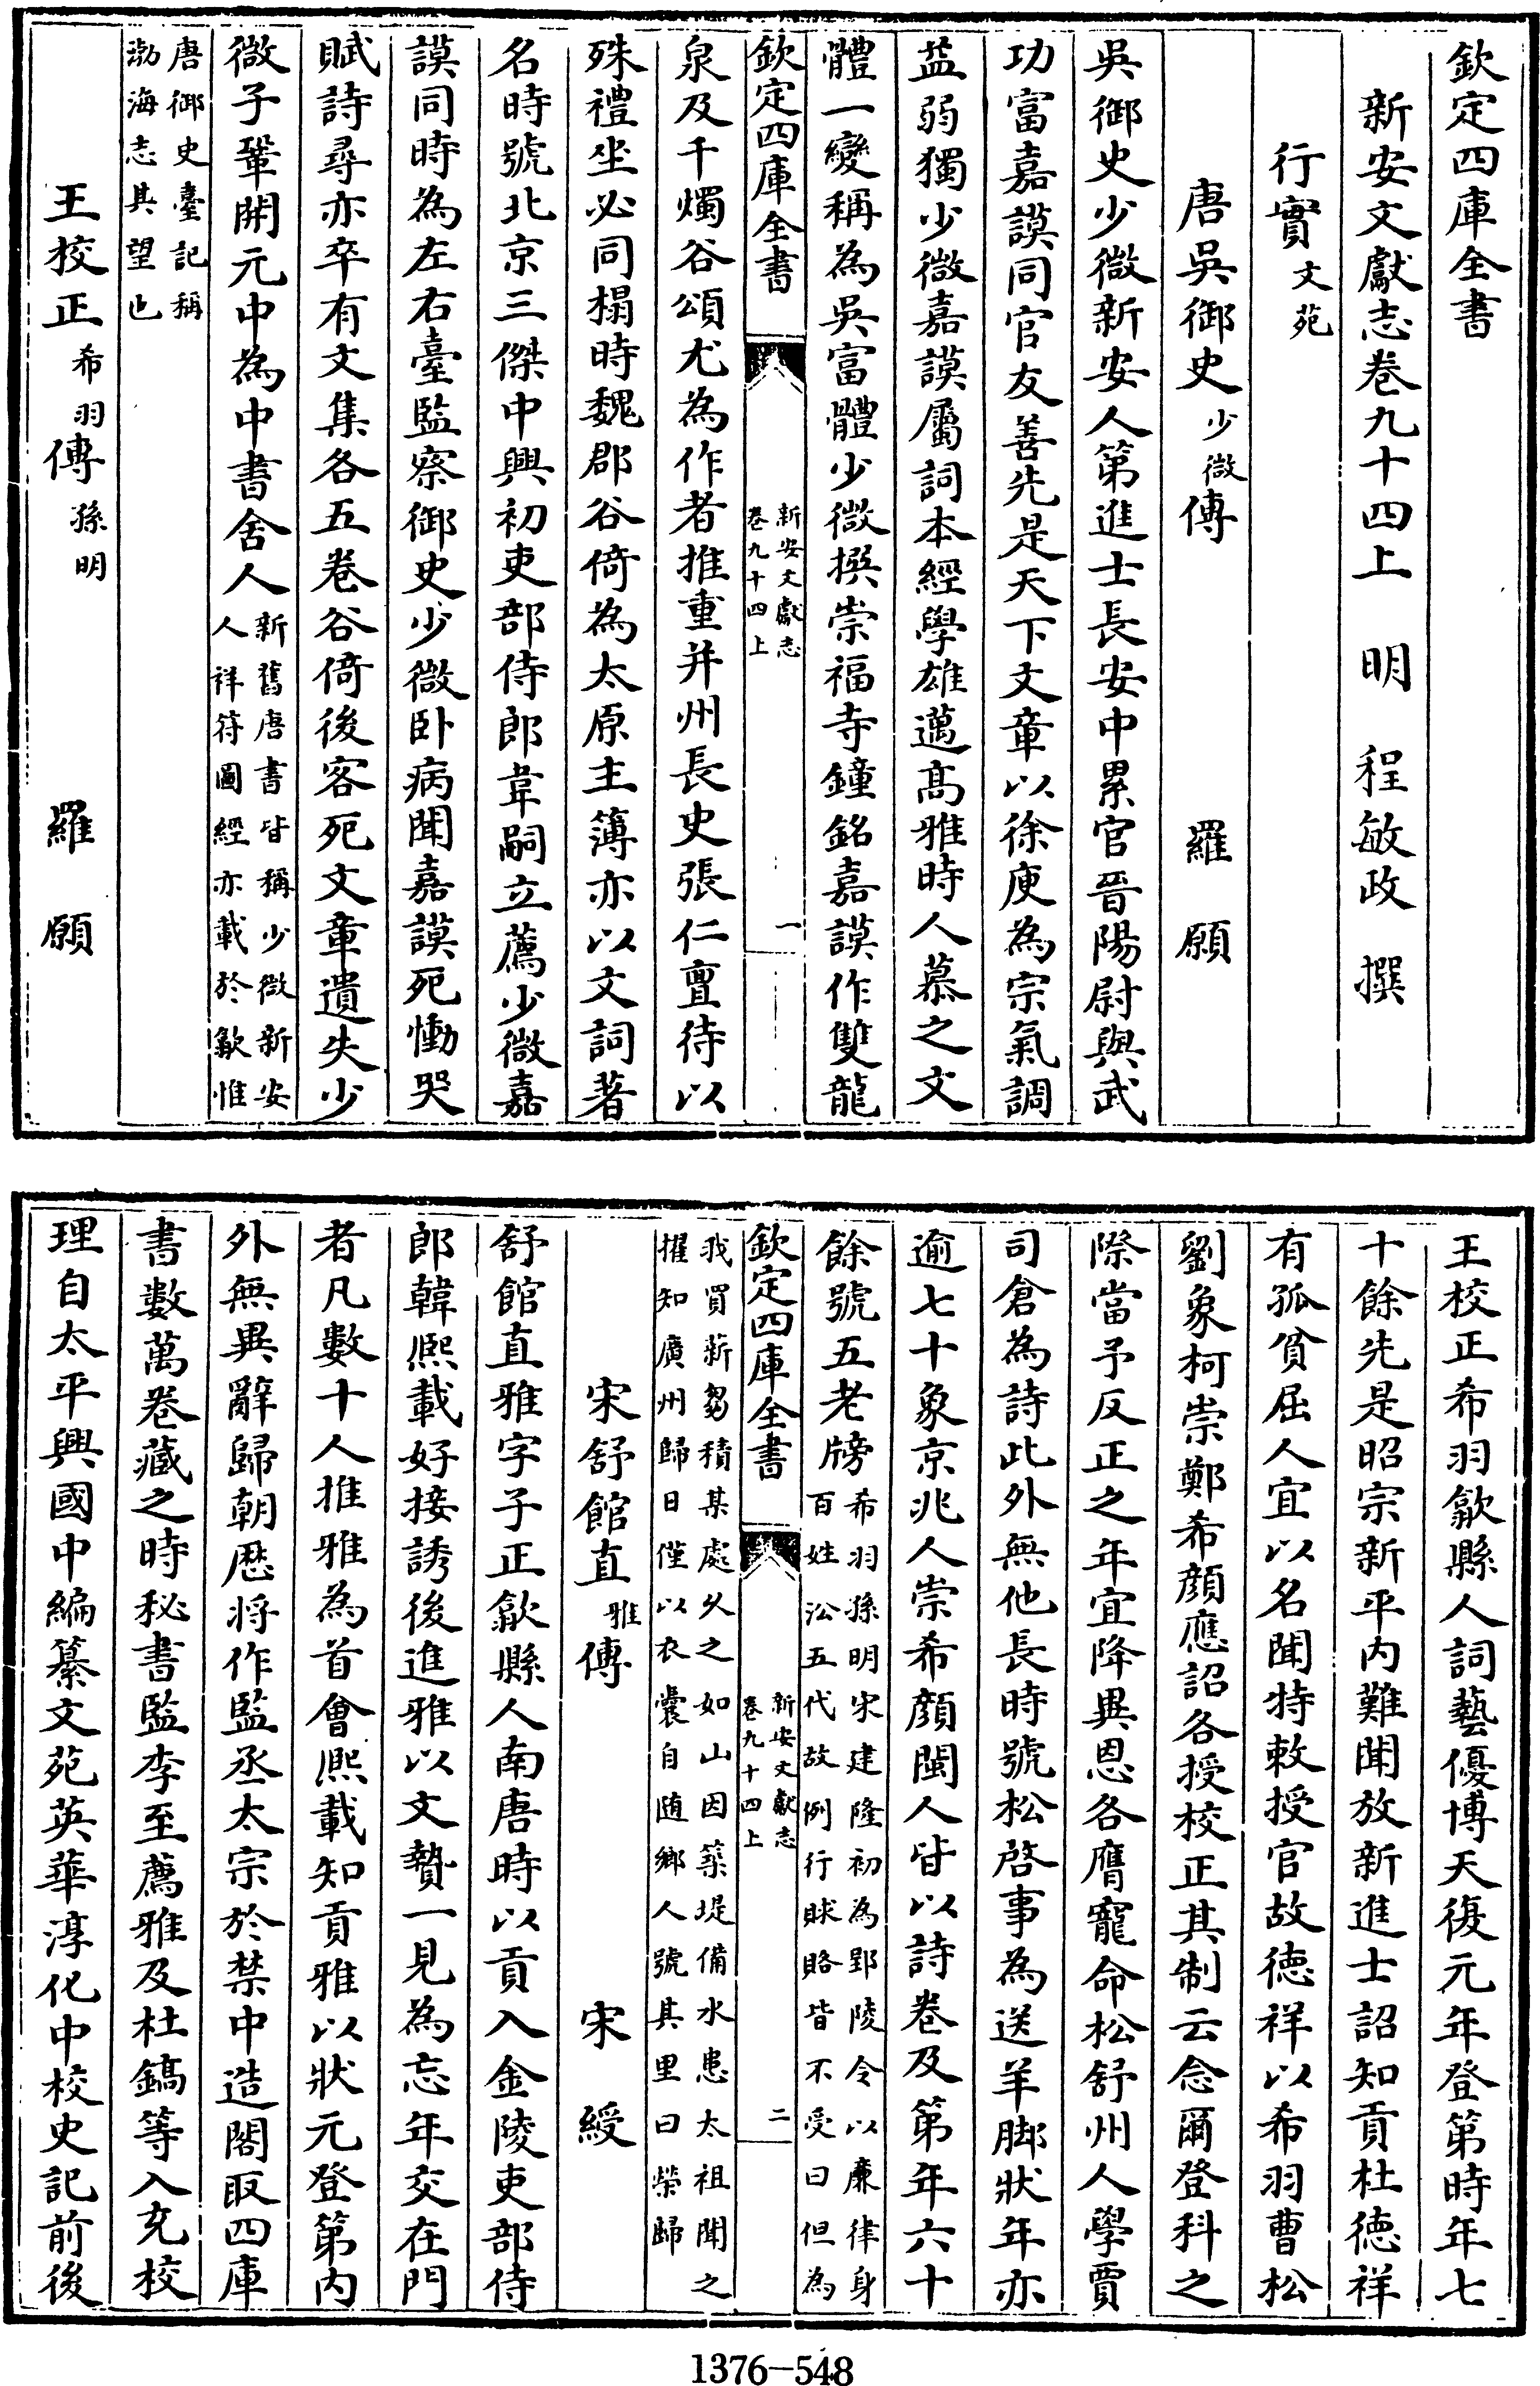 欽定四庫全書
新安文獻志卷九十四上　明　程敏政　撰
行實文苑
唐吳御史少微傳　羅願
吳御史少微新安人第進士長安中累官晉陽尉與武
功富嘉謨同官友善先是天下文章以徐庾為宗氣調
益弱獨少微嘉謨屬詞本經學雄邁高雅時人慕之文
體一變稱為吳富體少微撰崇福寺鐘銘嘉謨作雙龍
欽定四庫全書
新安文獻志
卷九十四上
一
泉及千燭谷頌尤為作者推重并州長史張仁亶待以
殊禮坐必同榻時魏郡谷倚為太原主簿亦以文詞著
名時號北京三傑中興初吏部侍郎韋嗣立薦少微嘉
謨同時為左右臺監察御史少微卧病聞嘉謨死慟哭
賦詩尋亦卒有文集各五卷谷倚後客死文章遺失少
微子鞏開元中為中書舍人新舊唐書皆稱少微新安
人祥符圖經亦載於歙惟
唐御史臺記稱
渤海志其望也
王校正希羽傳孫明　羅願
王校正希羽歙縣人詞藝優博天復元年登第時年七
十餘先是昭宗新平内難聞放新進士詔知貢杜徳祥
有孤貧屈人宜以名聞特敕授官故徳祥以希羽曹松
劉象柯崇鄭希顔應詔各授校正其制云念爾登科之
際當予反正之年宜降異恩各膺寵命松舒州人學賈
司倉為詩此外無他長時號松啓事為送羊脚狀年亦
逾七十象京兆人崇希顔閩人皆以詩卷及第年六十
餘號五老牓希羽孫明宋建隆初為郢陵令以廉律身
百姓㳂五代故例行賕賂皆不受曰但為
欽定四庫全書
新安文獻志
卷九十四上
二
我買薪芻積某處乆之如山因築堤備水患太祖聞之
擢知廣州歸日僅以衣囊自随鄉人號其里曰榮歸
宋舒館直雅傳　宋綬
舒館直雅字子正歙縣人南唐時以貢入金陵吏部侍
郎韓熙載好接誘後進雅以文贄一見為忘年交在門
者凡數十人推雅為首㑹熙載知貢雅以狀元登第内
外無異辭歸朝厯將作監丞太宗於禁中造閣取四庫
書數萬卷藏之時秘書監李至薦雅及杜鎬等入充校
理自太平興國中編纂文苑英華淳化中校史記前後
1376-548